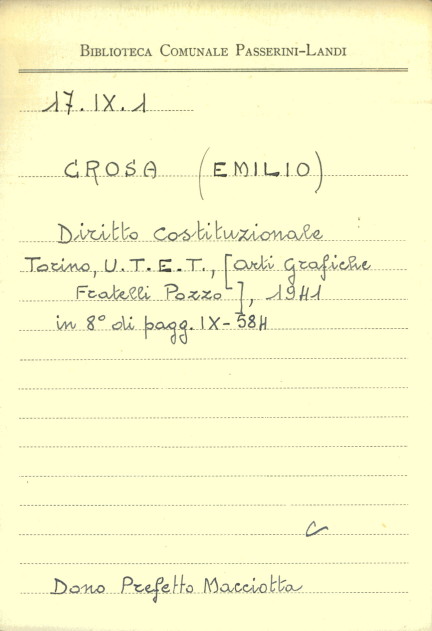 BIBLIOTECA COMUNALE PASSERINI-LANDI
17.IX.1
CROSA (EMILIO)
Diritto costituzionale
Torino, U.T.E.T., [Arti Grafiche
Fratelli Pozzo], 1941
in 8° di pagg. IX-584
C
Dono Prefetto Macciotta